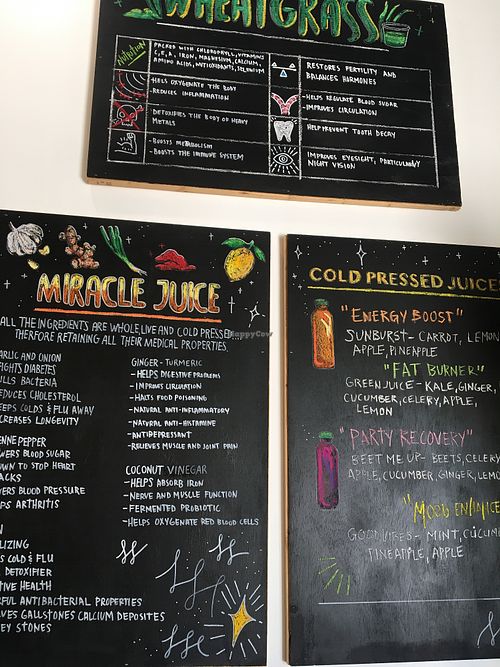 WHEATGRASS
Nutrition
PACKED WITH CHLOROPHYLL, VITAMINS
C, E, A, IRON, MAGNESIUM, CALCIUM,
AMINO ACIDS, ANTIOXIDANTS, SELENIUM
-HELPS OXYGENATE THE BODY
-REDUCES INFLAMMATION
DETOXIFIES THE BODY OF HEAVY
METALS
-BOOSTS METABOLISM
-BOOSTS THE IMMUNE SYSTEM
RESTORES FERTILITY AND
BALANCES HORMONES
-HELPS REGULATE BLOOD SUGAR
-IMPROVES CIRCULATION
HELP PREVENT TOOTH DECAY
IMPROVES EYESIGHT, PARTICULARLY
NIGHT VISION
MIRACLE JUICE
ALL THE INGREDIENTS ARE WHOLE, LIVE AND COLD PRESSED
THERFORE RETAINING ALL THEIR MEDICAL PROPERTIES.
ARLIC AND ONION
FIGHTS DIABETES
ULLS BACTERIA
EDUCES CHOLESTEROL
EEPS COLDS & FLU AWAY
CREASES LONGEVITY
ENNE PEPPER
WERS BLOOD SUGAR
OWN TO STOP HEART
ACKS
WERS BLOOD PRESSURE
LPS ARTHRITIS
N
LIZING
S COLD & FLU
DETOXIFIER
TIVE HEALTH
RFUL ANTIBACTERIAL PROPERTIES
VES GALLSTONES CALCIUM DEPOSITES
EY STONES
GINGER - TURMERIC
- HELPS DIGESTIVE PROBLEMS
- IMPROVE CIRCULATION
- HALTS FOOD POISONING
- NATURAL ANTI-INFLAMMATORY
- NATURAL ANTI-HISTAMINE
- ANTIDEPRESSANT
- RELIEVES MUSCLE AND JOINT PAIN
COCONUT VINEGAR
- HELPS ABSORB IRON
- NERVE AND MUSCLE FUNCTION
- FERMENTED PROBIOTIC
- HELPS OXYGENATE RED BLOOD CELLS
COLD PRESSED JUICES
"ENERGY BOOST"
SUNBURST - CARROT, LEMON
APPLE, PINEAPPLE
"FAT BURNER"
GREEN JUICE - KALE, GINGER,
CUCUMBER, CELERY, APPLE,
LEMON
"PARTY RECOVERY"
BEET ME UP - BEETS, CELERY
APPLE, CUCUMBER, GINGER, LEMO
"MOOD ENHANCE
GOOD VIBES - MINT, CUCUM
PINEAPPLE, APPLE
HappyCow